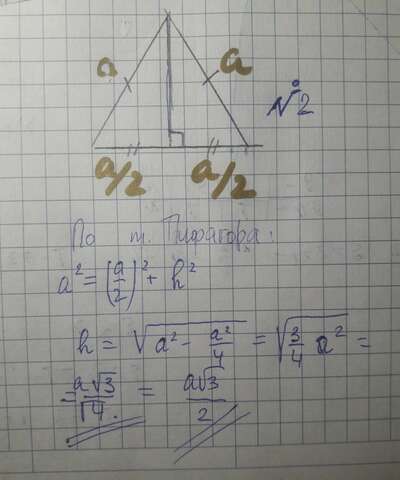 a a
№2
a/2 a/2
По т. Пифагора:
a² = (a/2)² + h²
h = √(a² - a²/4) = √(3/4 a²) =
= a√3/√4. = a√3/2